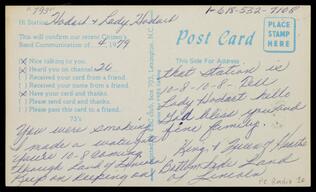 1-618-532-7108
Hi Station Hobart & Lady Hobart
This will confirm our recent Citizen's
Band Communication of 4 1979
Nice talking to you.
Heard you on channel 36
Received your card from a friend.
Received your name from a friend.
Have your card and thanks.
Please send card and thanks.
Please pass this card to a friend.
73's
You were smoking
made a
You're 10-8 coming
through Land of Lincoln
Keep on Keeping on
Post Card
PLACE
STAMP
HERE
This Side For Address
that station is
10-8-10-8- Dell
Lady Hobart hello
God bless you and
fine family.
King & Queen of Hearts
Bottom Side Land
of Lincoln